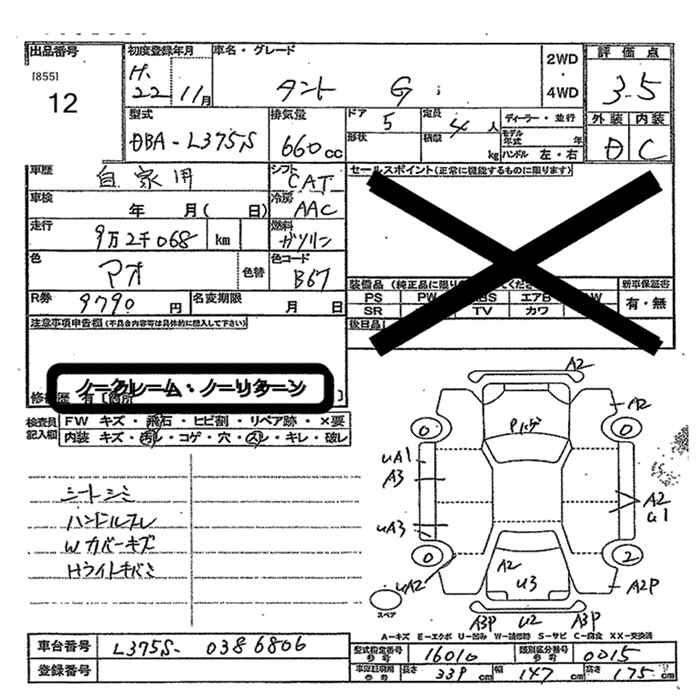 出品番号 初度登録年月 車名・グレード 2WD・4WD 評価点
[855]
12
H.22 11月 タント G 3.5
型式 排気量 ドア 定員 ディーラー・並行 外装 内装
DBA-L375S 660cc 5 4人 形状 積載 kg モデル年式 年 ハンドル 左・右 D C
車歴 自家用 シフト CAT セールスポイント(正常に機能するものに限ります)
車検 年 月( 日) 冷房 AAC
走行 9万2千068 km 燃料 ガソリン
色 アオ 色替 色コード B67 装備品(純正品に限り 新車保証書
R券 9790円 名変期限 月 日 PS PW ABS エアB W 有・無
SR TV カワ
注意事項申告欄(不具合内容等は具体的に記入して下さい) 後日品
ノークレーム・ノーリターン
修復歴 有[箇所 ]
検査員記入欄 FW キズ・飛石・ヒビ割・リペア跡・×要
内装 キズ・汚レ・コゲ・穴・スレ・キレ・破レ
シートシミ
ハンドルスレ
Wカバーキズ
Hライトキバミ
A2
A2
0 Pハゲ 0
uA1
A3
A2
u1
uA3
0 2
A2
u3
uA2 A2P
スペア A3P u2 A3P
A-キズ E-エクボ U-凹み W-補修跡 S-サビ C-腐食 XX-交換済
車台番号 L375S-0386806
登録番号
型式指定番号 16010 類別区分番号 0015
長さ 339cm 幅 147cm 高さ 175cm